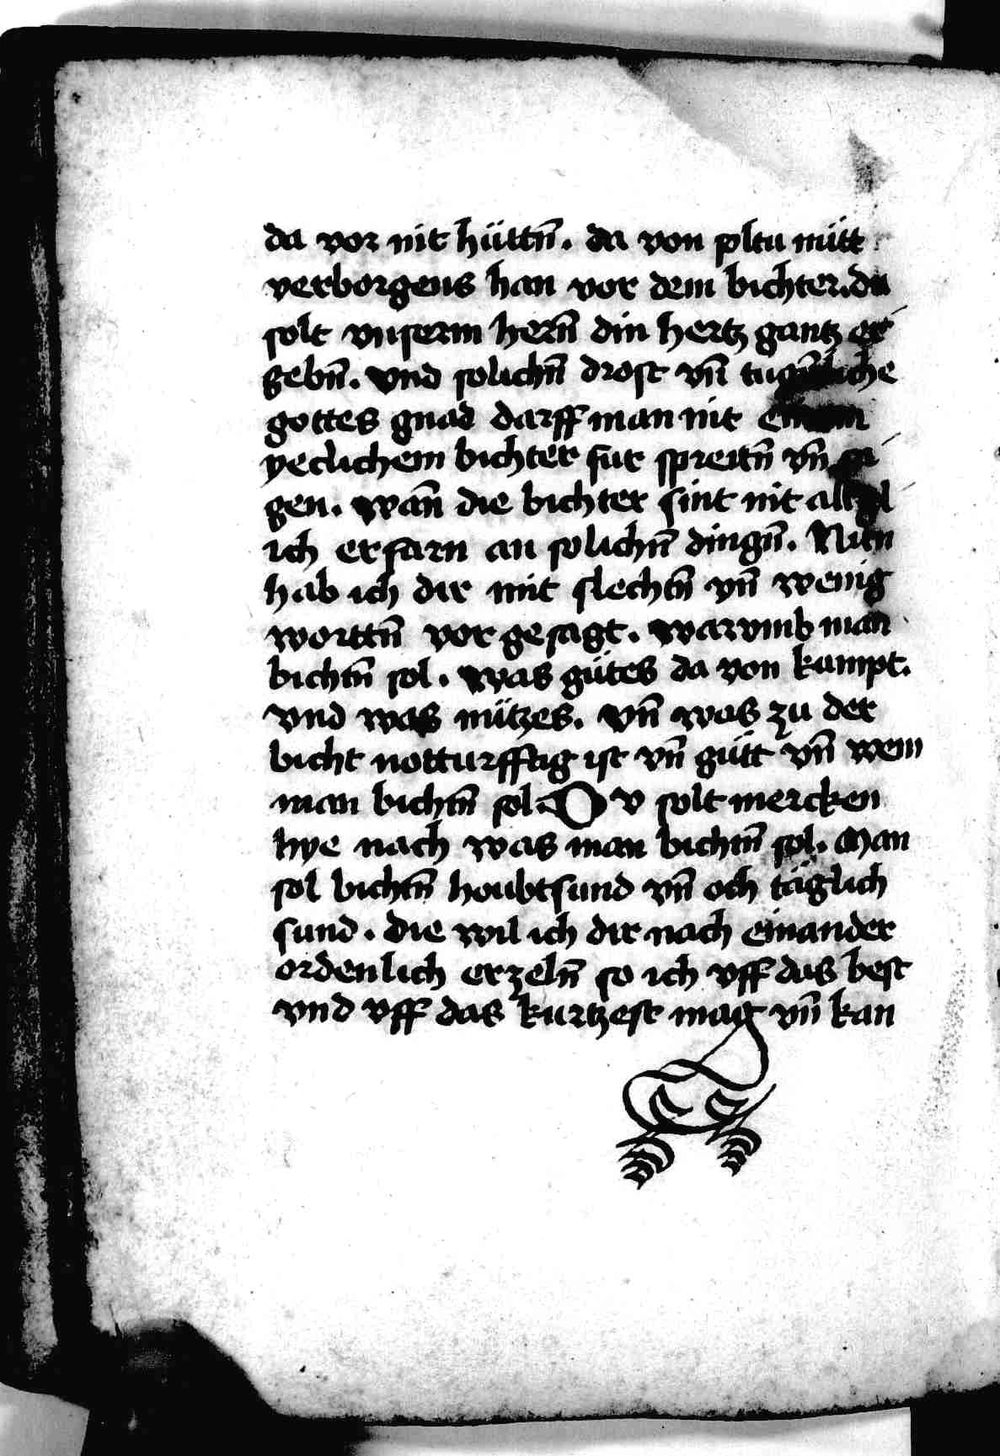 da vor nit hüttn̄. da von pltu nütt
verborgens han vor dem bichter. du
solt vnserm hern̄ din hertz gantz er
gebn̄. vnd solichn̄ drost vn̄ tugentliche
gottes gnad darff man nit einem
yeclichem bichter fur spreitn̄ vn̄ sa
gen. wan̄ die bichter sint nit all gl
ich erfarn an solichn̄ dingn̄. Nun
hab ich dir mit slechtn̄ vn̄ wenig
worttn̄ vor gesagt. warvmb man
bichtn̄ sol. was gütes da von kumpt.
vnd was nützes. vn̄ was zu der
bicht notturfftig ist vn̄ gütt vn̄ wem
man bichtn̄ sol. Dv solt mercken
hye nach was man bichtn̄ sol. Man
sol bichtn̄ houbtsund vn̄ och täglich
sund. die wil ich dir nach einander
ordenlich erzeln̄ so ich vff das best
vnd vff das kurtzest mag vn̄ kan